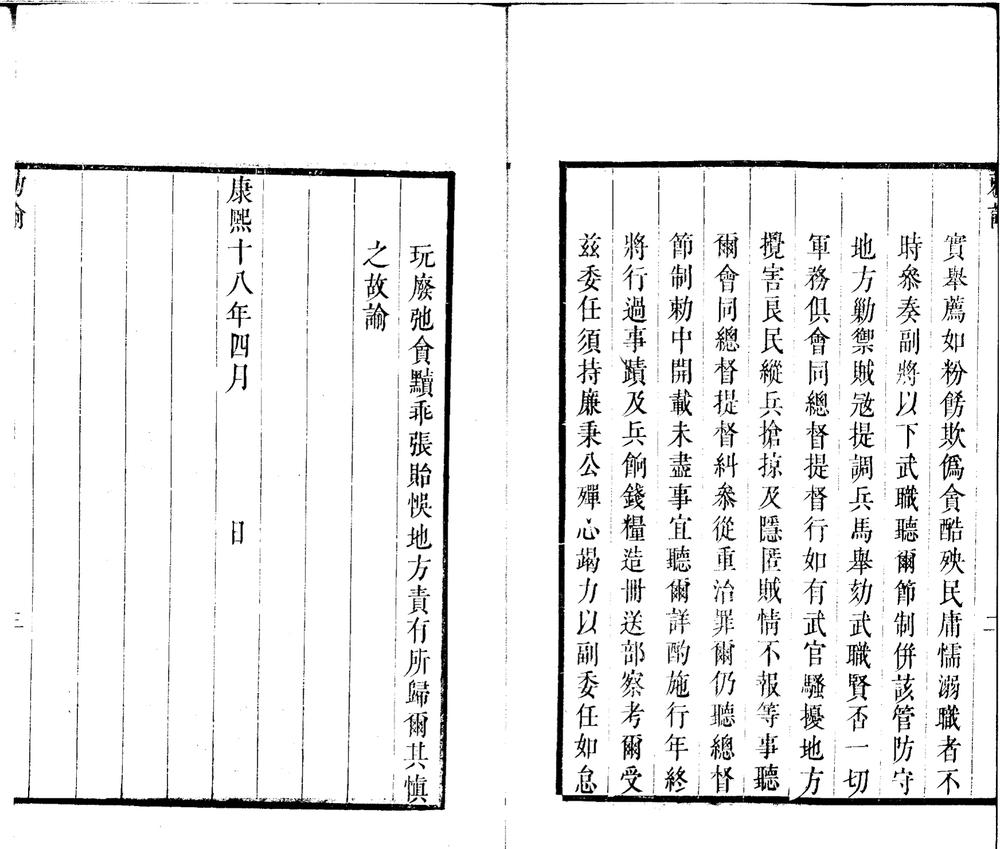 實舉薦如粉餙欺僞貪酷殃民庸懦溺職者不
時叅奏副將以下武職聽爾節制併該管防守
地方勦禦賊宼提調兵馬舉劾武職賢否一切
軍務俱會同總督提督行如有武官騷擾地方
攪害良民縱兵搶掠及隱匿賊情不報等事聽
爾會同總督提督糾叅從重治罪爾仍聽總督
節制勅中開載未盡事宜聽爾詳酌施行年終
將行過事蹟及兵餉錢糧造冊送部察考爾受
兹委任須持廉秉公殫心竭力以副委任如怠
二
玩廢弛貪黷乖張貽悞地方責有所歸爾其慎
之故諭
康熙十八年四月 日
三